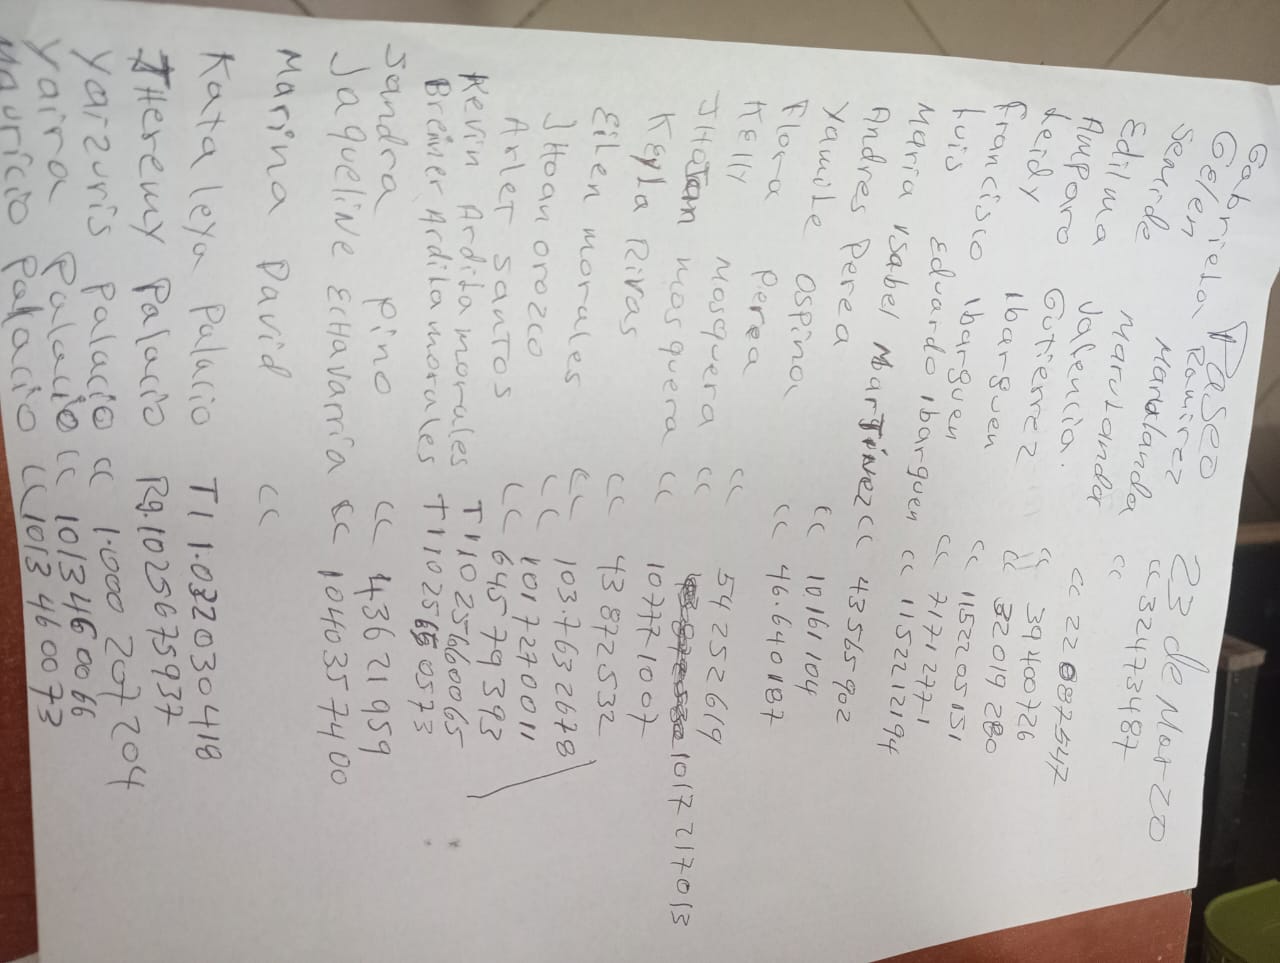 Paseo 23 de Marzo
Gabriela
Gelen Ramirez
Senide Marulanda cc 32473487
Edilma Marulanda cc
Amparo Valencia. cc 22087547
Leidy Gutierrez cc 39400726
Francisco Ibarguen cc 32019280
Luis Ibarguen cc 1152205151
Eduardo Ibarguen cc 71712771
Maria Isabel Martinez cc 1152212194
Andres Perea cc 43565902
Yamile Ospina cc 10161104
Flora Perea cc 46.640187
Kelly Mosquera cc 54252619
JHoan mosquera cc 1017217013
Keyla Rivas cc 107771007
Eilen morales cc 43872532
JHoan orozco cc 103.7632678
Arlet santos cc 1017270011
cc 64579393
Kevin Ardila morales TI 1025660065
Breiner Ardila morales TI 1025660573
Sandra Pino cc 43621959
Jaqueline Echavarria cc 1040357400
Marina David cc
Kataleya Palacio TI 1.032030418
JHeremy Palacio Rg.1025675937
Yarzuris Palacio cc 1.000 207 204
Yaira Palacio cc 1013460066
Mauricio Palacio cc 1013460073